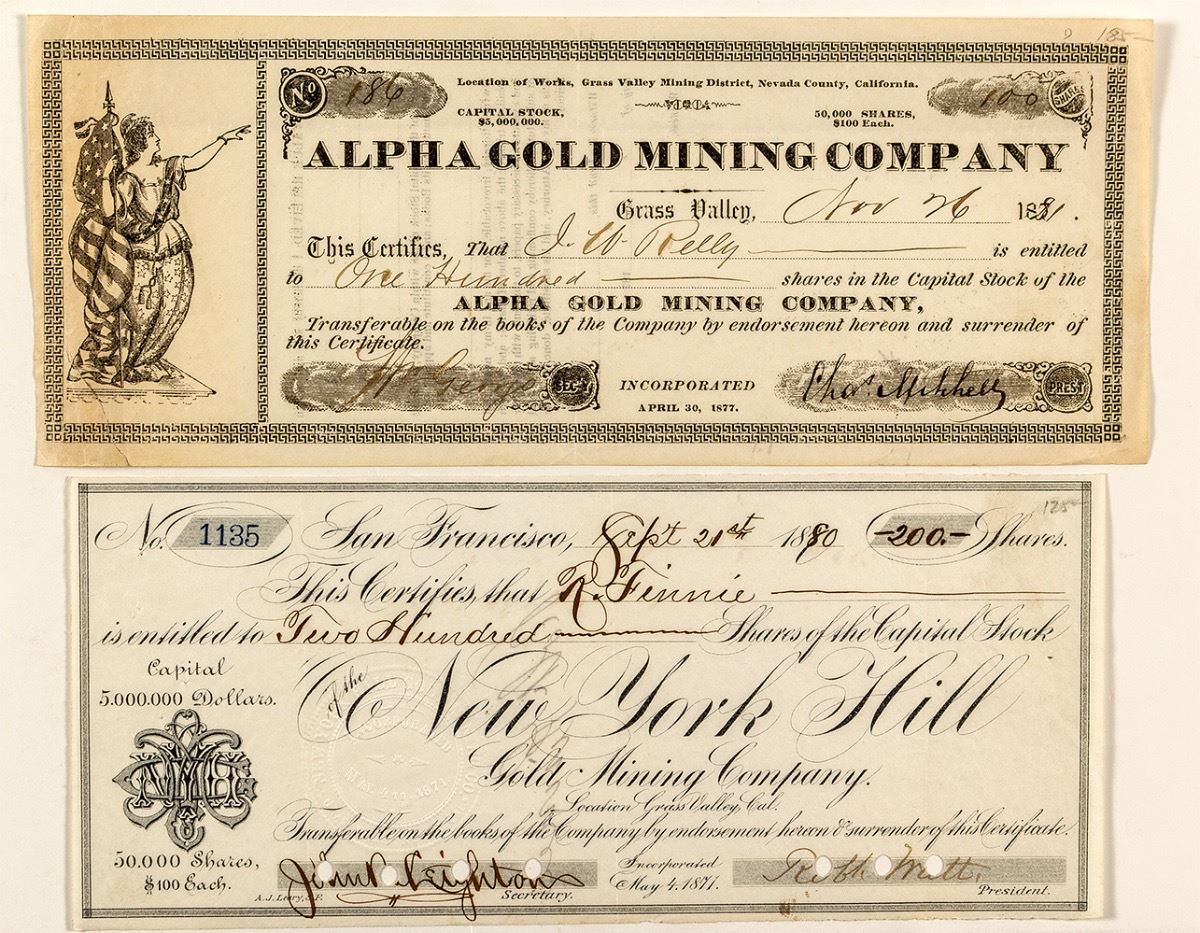 185-
No 186
Location of Works, Grass Valley Mining District, Nevada County, California.
100 SHARES
CAPITAL STOCK, $5,000,000.
50,000 SHARES, $100 Each.
ALPHA GOLD MINING COMPANY
Grass Valley, Nov 26 1881.
This Certifies, That J. W. Relly is entitled
to One Hundred shares in the Capital Stock of the
ALPHA GOLD MINING COMPANY,
Transferable on the books of the Company by endorsement hereon and surrender of
this Certificate.
Wm George SEC'Y
INCORPORATED
APRIL 30, 1877.
Chas. Mitchell PREST
125-
No. 1135 San Francisco, Sept 21st 1880 -200.- Shares.
This Certifies, that R. Finnie
is entitled to Two Hundred Shares of the Capital Stock
of the New York Hill
Gold Mining Company.
Location Grass Valley, Cal.
Transferable on the books of the Company by endorsement hereon & surrender of this Certificate.
Capital
5.000.000 Dollars.
50.000 Shares,
$100 Each.
John P. Leighton
Secretary.
Incorporated
May 4, 1871.
Robt Watt.
President.